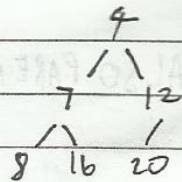 4
7 12
8 16 20